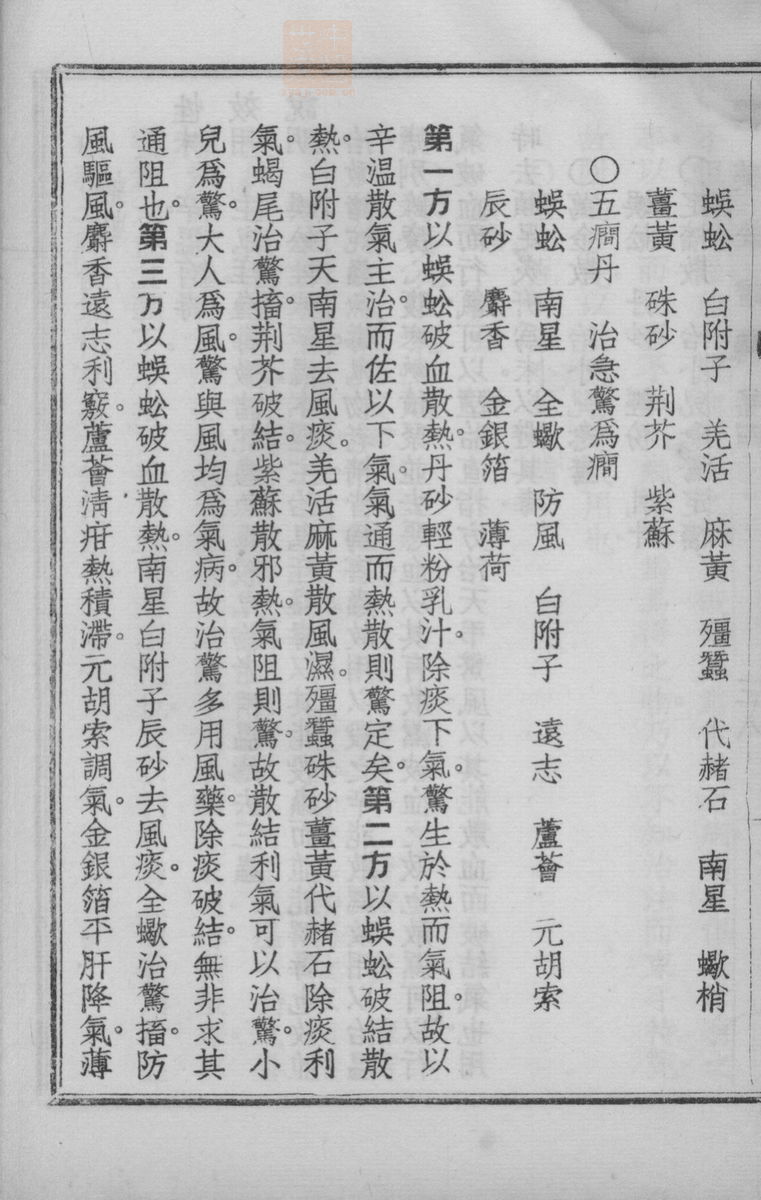 蜈蚣　白附子　羌活　麻黃　殭蠶　代赭石　南星　蠍梢
薑黃　硃砂　荆芥　紫蘇
〇五癎丹　治急驚爲癎
蜈蚣　南星　全蠍　防風　白附子　遠志　蘆薈　元胡索
辰砂　麝香　金銀箔　薄荷
第一方以蜈蚣破血散熱。丹砂輕粉乳汁。除痰下氣。驚生於熱而氣阻。故以
辛温散氣主治。而佐以下氣。氣通而熱散則驚定矣。第二方以蜈蚣破結散
熱。白附子天南星去風痰。羌活麻黃散風濕。殭蠶硃砂薑黃代赭石除痰利
氣。蝎尾治驚搐。荆芥破結。紫蘇散邪熱。氣阻則驚。故散結利氣可以治驚。小
兒爲驚。大人爲風。驚與風均爲氣病。故治驚多用風藥。除痰破結。無非求其
通阻也。第三方以蜈蚣破血散熱。南星白附子辰砂去風痰。全蠍治驚搐。防
風驅風。麝香遠志利竅。蘆薈清疳熱積滯。元胡索調氣。金銀箔平肝降氣。薄